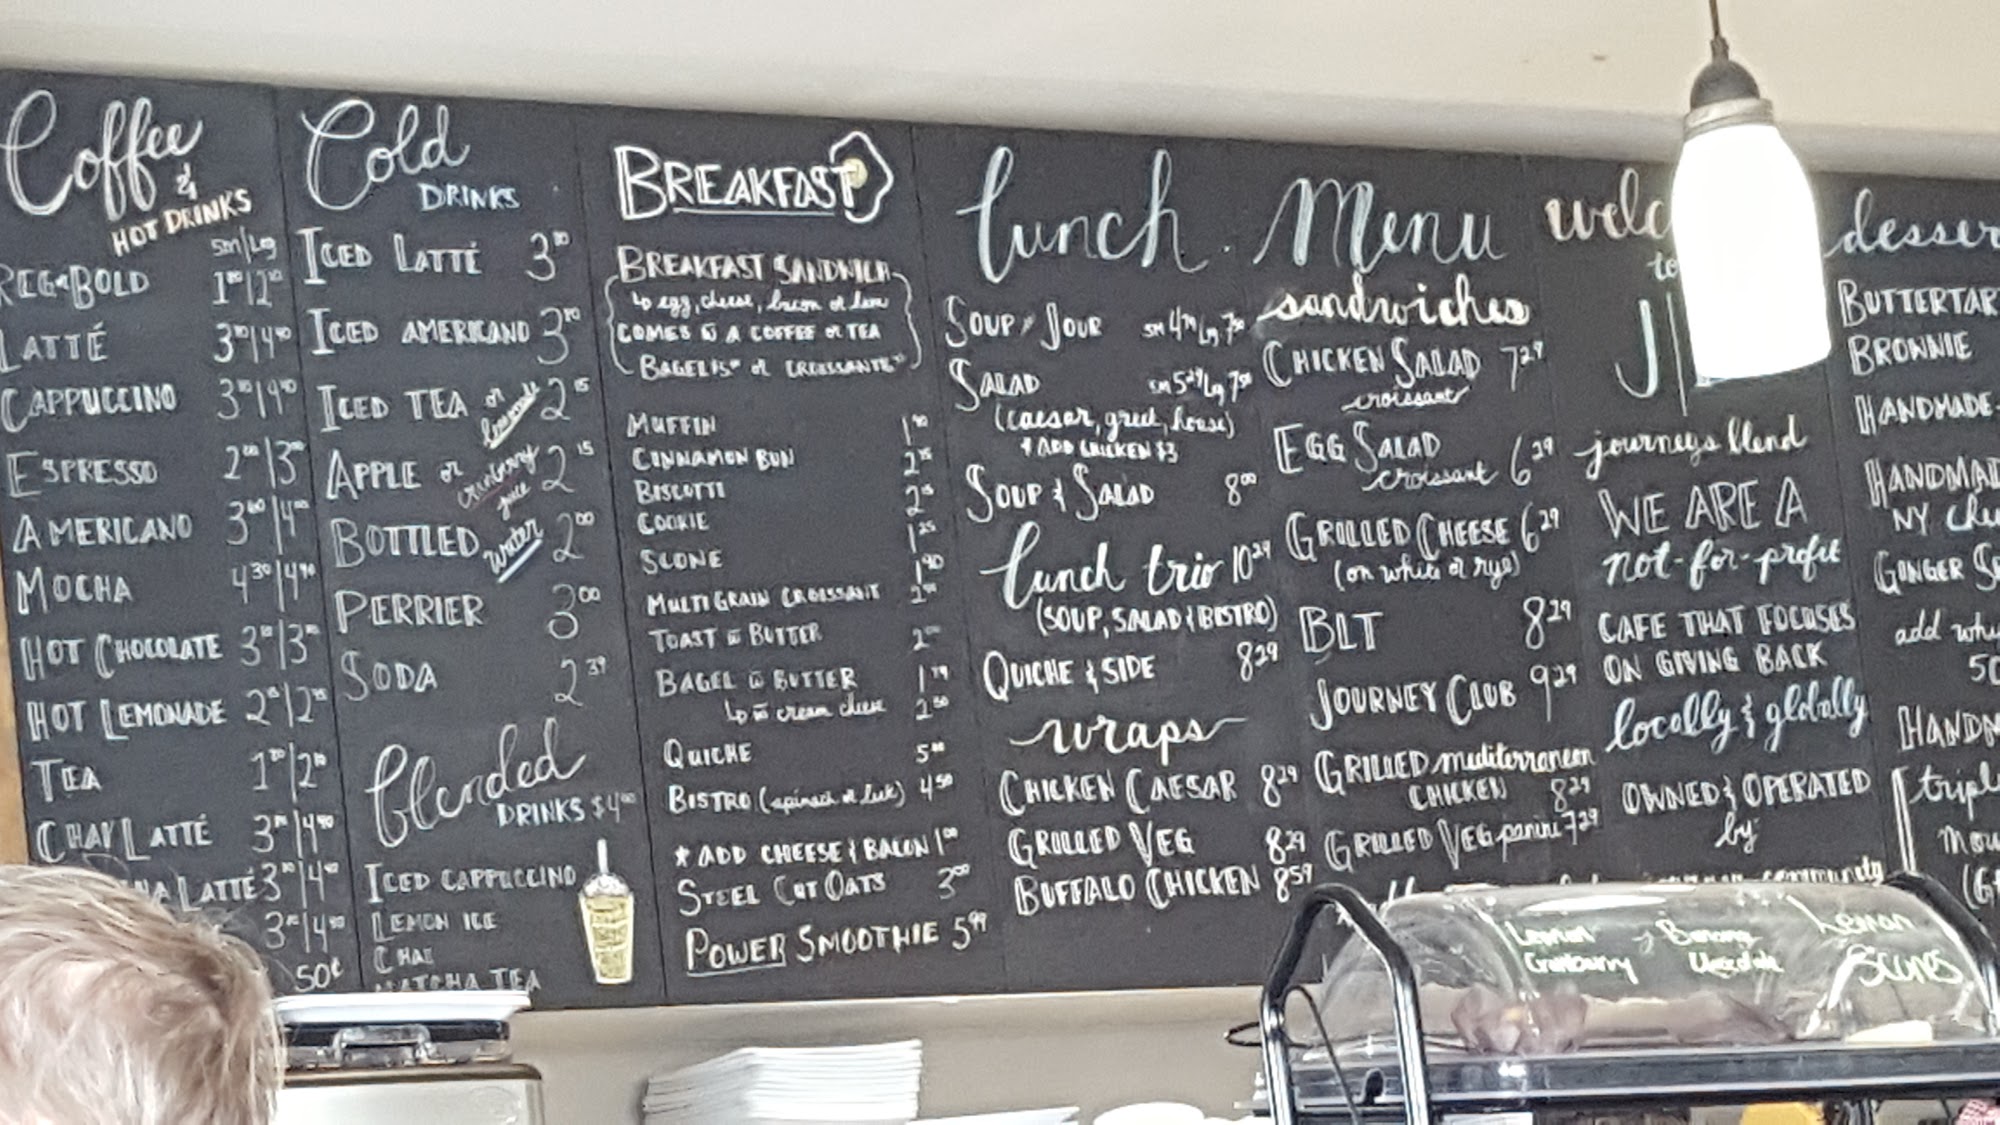 Coffee
&
HOT DRINKS
Sm/Lg
REG & BOLD
LATTÉ
CAPPUCCINO
ESPRESSO 2⁰⁰/3⁰⁰
AMERICANO
MOCHA
HOT CHOCOLATE
HOT LEMONADE
TEA
CHAI LATTÉ
LATTÉ
50¢
Cold
DRINKS
ICED LATTÉ
ICED AMERICANO
ICED TEA or lemonade 2¹⁵
APPLE or cranberry juice 2¹⁵
BOTTLED water 2⁰⁰
PERRIER 3⁰⁰
SODA 2³⁹
blended
DRINKS $4⁰⁰
ICED CAPPUCCINO
LEMON ICE
CHAI
MATCHA TEA
BREAKFAST
BREAKFAST SANDWICH
↳ egg, cheese, bacon or ham
COMES w A COFFEE or TEA
BAGELS* or CROISSANTS*
MUFFIN 1⁹⁰
CINNAMON BUN
BISCOTTI
COOKIE 1²⁵
SCONE 1⁹⁰
MULTIGRAIN CROISSANT
TOAST w BUTTER
BAGEL w BUTTER
↳ w cream cheese 2⁵⁰
QUICHE
BISTRO (spinach or leek) 4⁵⁰
* ADD CHEESE & BACON 1⁰⁰
STEEL CUT OATS 3⁰⁰
POWER SMOOTHIE 5⁹⁹
lunch Menu
SOUP JOUR
SALAD SM 5²⁹ Lg 7⁵⁰
(caesar, greek, house)
* ADD CHICKEN $3
SOUP & SALAD 8⁰⁰
lunch trio 10²⁹
(SOUP, SALAD & BISTRO)
QUICHE & SIDE 8²⁹
wraps
CHICKEN CAESAR 8²⁹
GRILLED VEG 8²⁹
BUFFALO CHICKEN 8⁵⁹
sandwiches
CHICKEN SALAD 7²⁹
croissant
EGG SALAD
croissant 6²⁹
GRILLED CHEESE 6²⁹
(on white or rye)
BLT 8²⁹
JOURNEY CLUB 9²⁹
GRILLED mediterranean
CHICKEN 8²⁹
GRILLED VEG panini 7²⁹
welc
to
J
journeys blend
WE ARE A
not-for-profit
CAFE THAT FOCUSES
ON GIVING BACK
locally & globally
OWNED & OPERATED
by
community
desser
BUTTERTAR
BROWNIE
HANDMADE
HANDMAD
NY che
GINGER S
add whi
50
HANDM
triple
Mou
(G
Lemon
Cranberry
Banana
Chocolate
Lemon
Scones